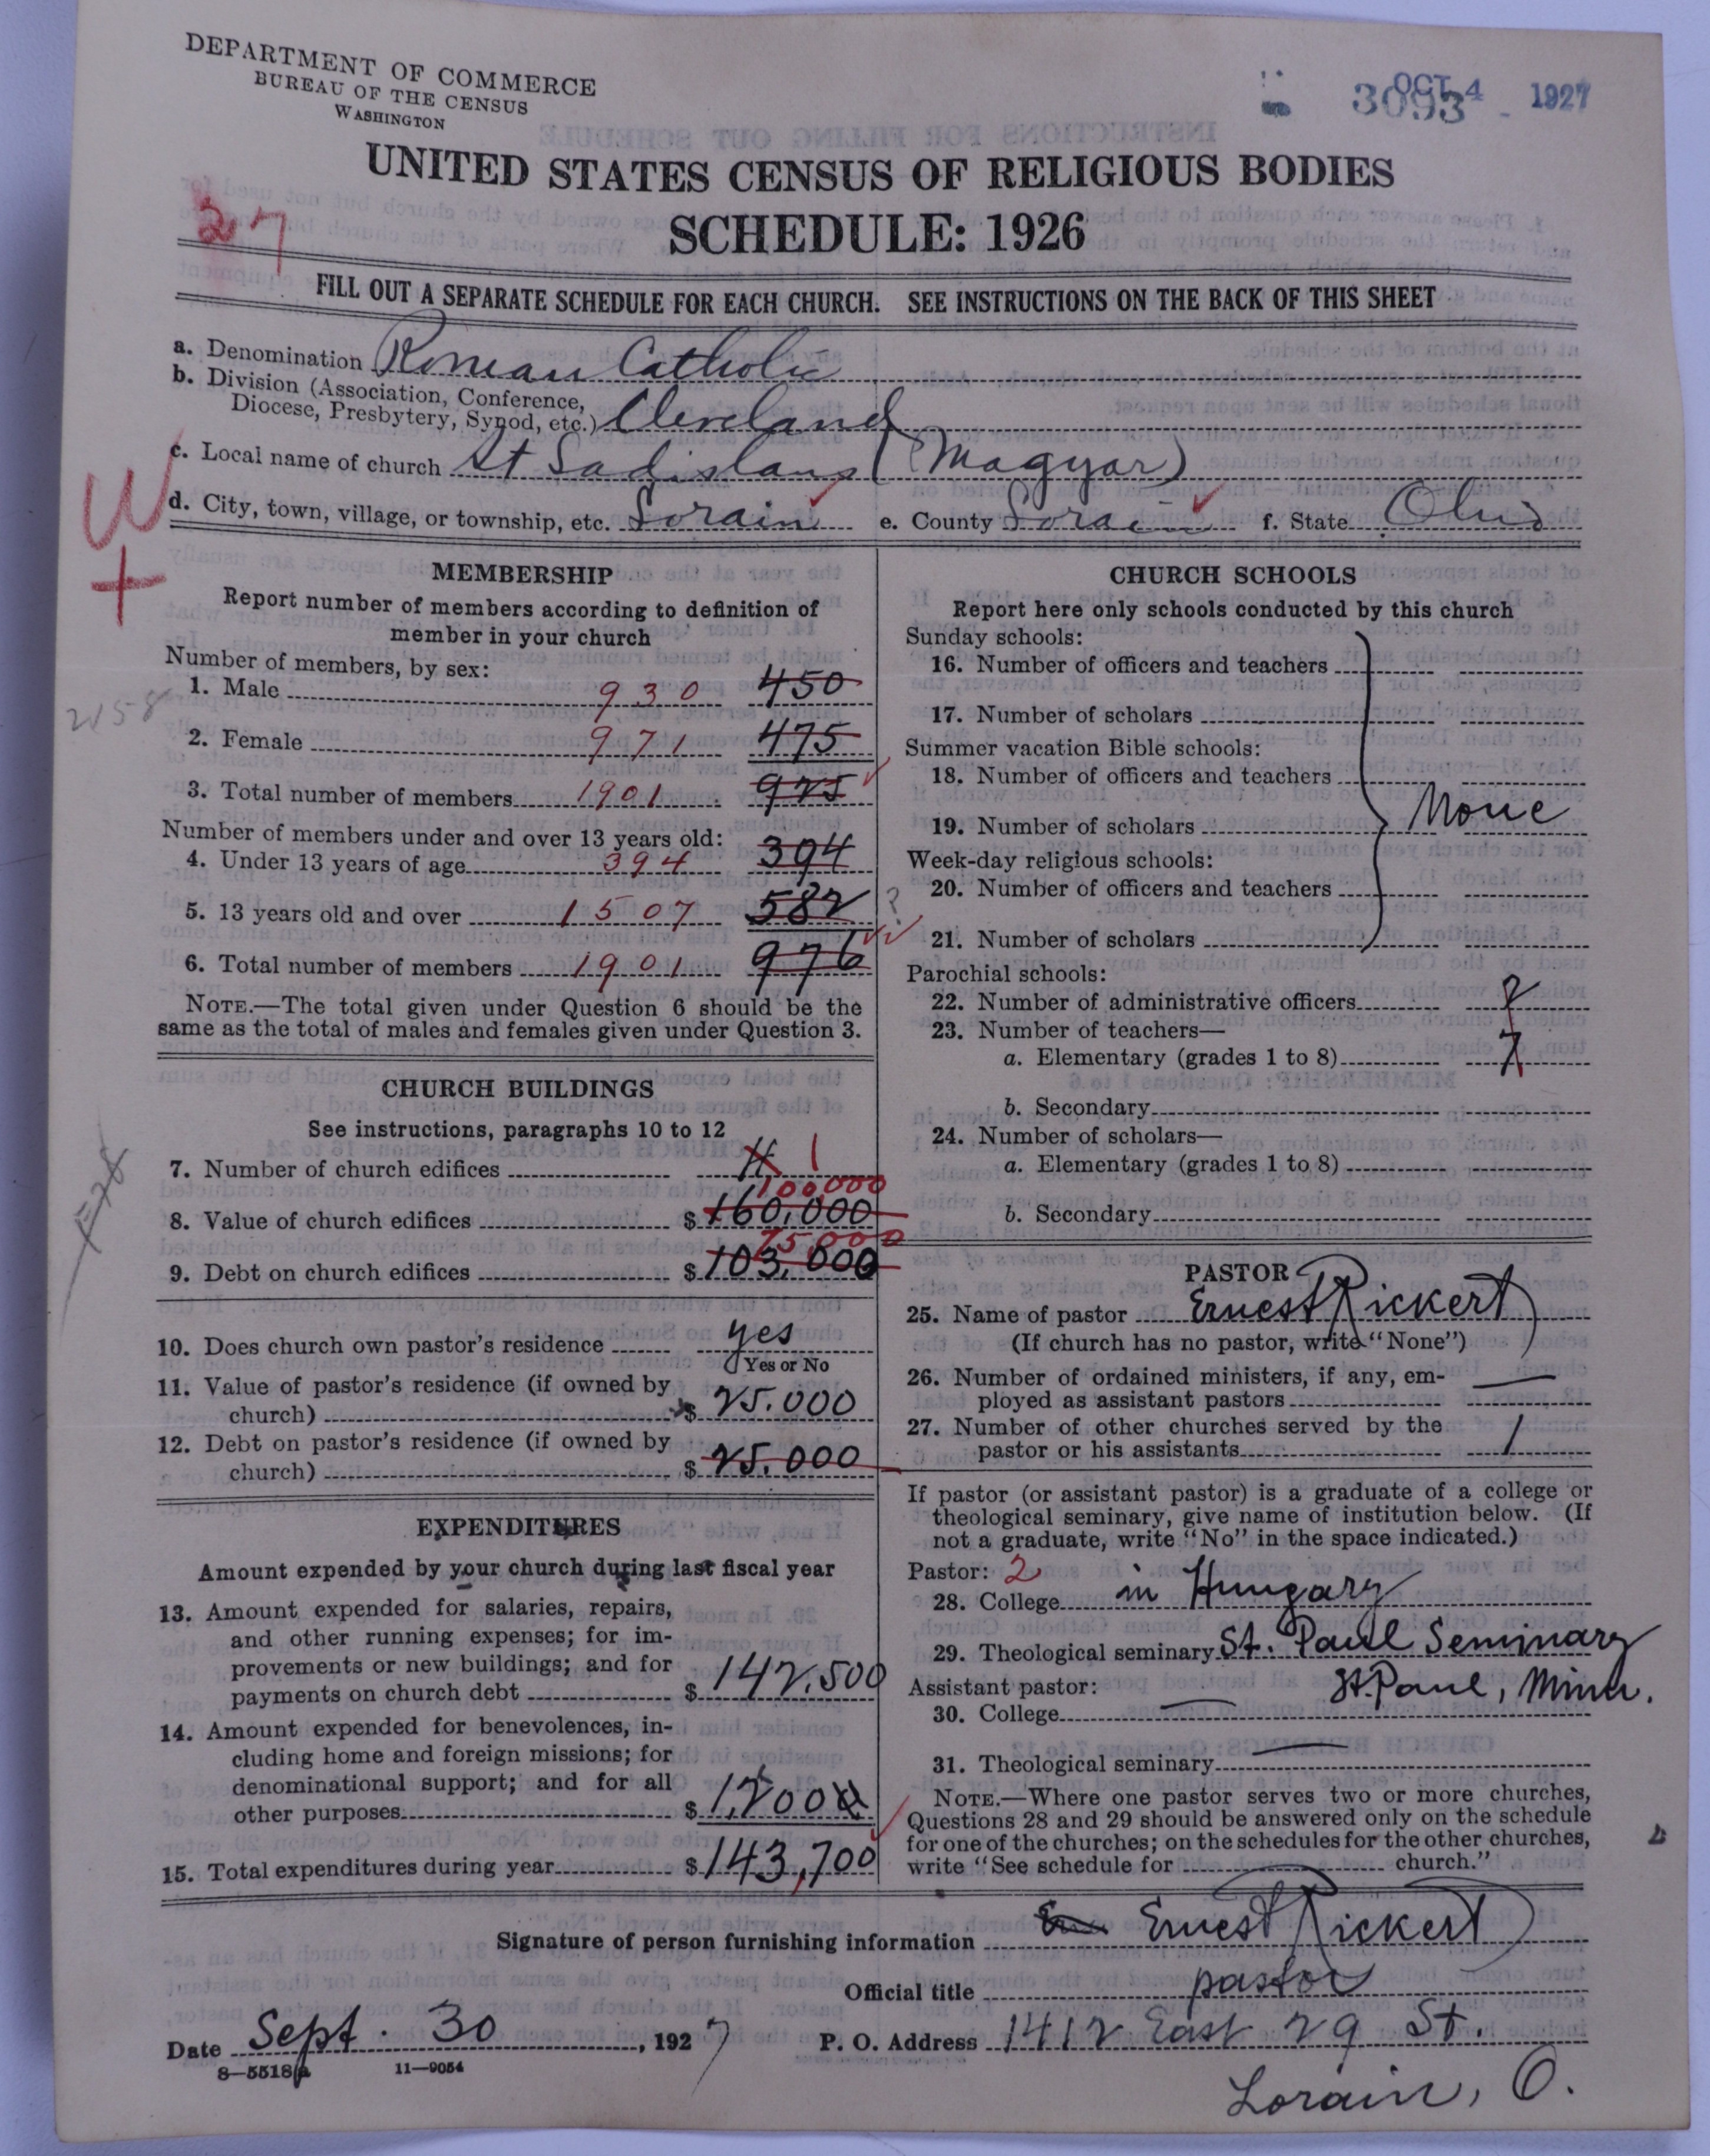 DEPARTMENT OF COMMERCE
BUREAU OF THE CENSUS
WASHINGTON
3093 OCT 4 1927
UNITED STATES CENSUS OF RELIGIOUS BODIES
SCHEDULE: 1926
27
FILL OUT A SEPARATE SCHEDULE FOR EACH CHURCH. SEE INSTRUCTIONS ON THE BACK OF THIS SHEET
a. Denomination Roman Catholic
b. Division (Association, Conference,
Diocese, Presbytery, Synod, etc.) Cleveland
c. Local name of church St Ladislaus (Magyar)
d. City, town, village, or township, etc. Lorain e. County Lorain f. State Ohio
W
+
MEMBERSHIP
Report number of members according to definition of
member in your church
Number of members, by sex:
1. Male 930 450
2158
2. Female 971 475
3. Total number of members 1901 925
Number of members under and over 13 years old:
4. Under 13 years of age 394 394
5. 13 years old and over 1507 582 ?
6. Total number of members 1901 976
NOTE.—The total given under Question 6 should be the
same as the total of males and females given under Question 3.
CHURCH BUILDINGS
See instructions, paragraphs 10 to 12
7. Number of church edifices 1
100,000
8. Value of church edifices $ 160,000
75,000
9. Debt on church edifices $ 103,000
10. Does church own pastor's residence yes
Yes or No
11. Value of pastor's residence (if owned by
church) $ 25.000
12. Debt on pastor's residence (if owned by
church) $ 25.000
EXPENDITURES
Amount expended by your church during last fiscal year
13. Amount expended for salaries, repairs,
and other running expenses; for im-
provements or new buildings; and for
payments on church debt $ 142.500
14. Amount expended for benevolences, in-
cluding home and foreign missions; for
denominational support; and for all
other purposes $ 1,200
15. Total expenditures during year $ 143,700
CHURCH SCHOOLS
Report here only schools conducted by this church
Sunday schools:
16. Number of officers and teachers
17. Number of scholars
Summer vacation Bible schools:
18. Number of officers and teachers
19. Number of scholars None
Week-day religious schools:
20. Number of officers and teachers
21. Number of scholars
Parochial schools:
22. Number of administrative officers
23. Number of teachers—
a. Elementary (grades 1 to 8)
b. Secondary
24. Number of scholars—
a. Elementary (grades 1 to 8)
b. Secondary
PASTOR
25. Name of pastor Ernest Rickert
(If church has no pastor, write "None")
26. Number of ordained ministers, if any, em-
ployed as assistant pastors —
27. Number of other churches served by the
pastor or his assistants 1
If pastor (or assistant pastor) is a graduate of a college or
theological seminary, give name of institution below. (If
not a graduate, write "No" in the space indicated.)
Pastor: 2
28. College in Hungary
29. Theological seminary St. Paul Seminary
Assistant pastor: St. Paul, Minn.
30. College —
31. Theological seminary —
NOTE.—Where one pastor serves two or more churches,
Questions 28 and 29 should be answered only on the schedule
for one of the churches; on the schedules for the other churches,
write "See schedule for church."
Signature of person furnishing information Ernest Rickert
Official title pastor
Date Sept. 30, 1927 P. O. Address 1412 East 29 St.
8—5518a 11—9054
Lorain, O.